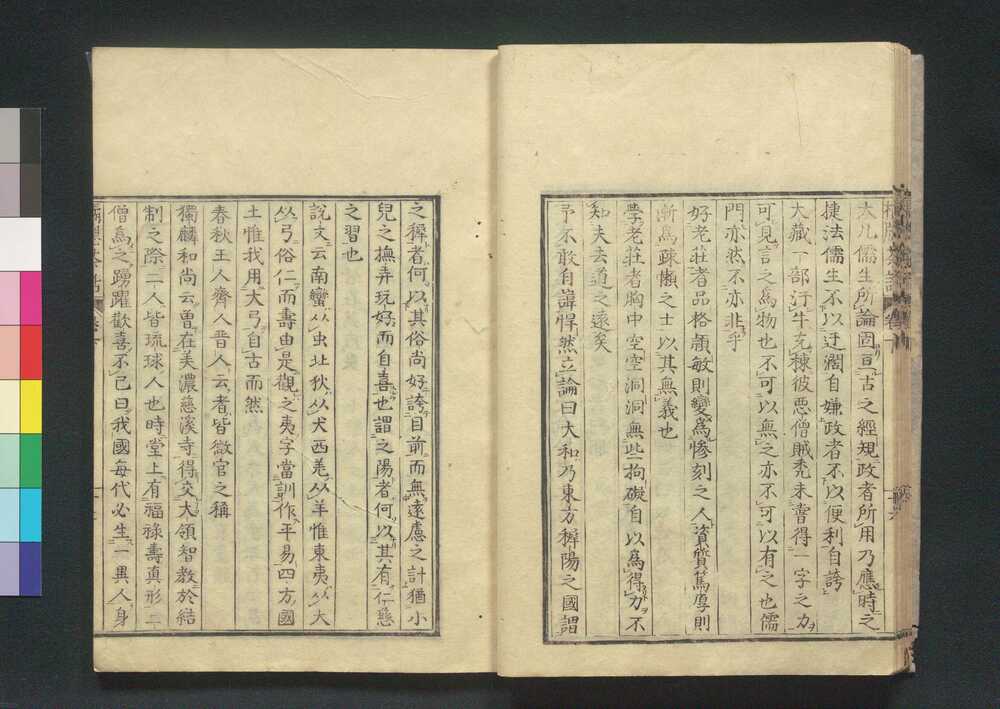 大凡儒生所論固亘古之經規政者所用乃應時之
捷法儒生不以迂濶自嫌政者不以便利自誇
大藏一部汗牛充棟彼惡僧賊禿未嘗得一字之力
可見言之為物也不可以無之亦不可以有之也儒
門亦然不亦非乎
好老莊者品格頴敏則變為慘刻之人資質篤厚則
漸為踈懶之士以其無義也
學老莊者胸中空空洞洞無些拘礙自以為得力不
知夫去道之遠矣
予不敢自諱悍然立論曰大和乃東方穉陽之國謂
之穉者何以其俗尚好誇目前而無遠慮之計猶小
兒之撫弄玩好而自喜也謂之陽者何以其有仁慈
之習也
說文云南蠻从虫北狄从犬西羌从羊惟東夷从大
从弓俗仁而壽由是觀之夷字當訓作平易四方國
土惟我用大弓自古而然
春秋王人齊人晋人云者皆微官之稱
獨麟和尚云曽在美濃慈溪寺得交大領智教於結
制之際二人皆琉球人也時堂上有福祿壽真形二
僧為之踴躍歡喜不已曰我國每代必生一異人身